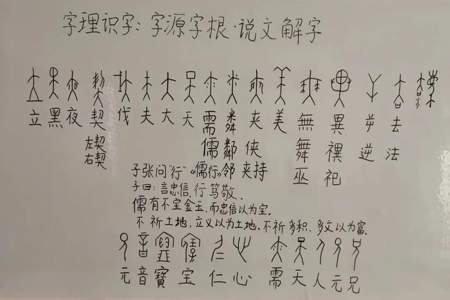 字理识字：字源字根·说文解字
立 黑 夜 契 伐 夫 大 天 需 粦 夾 美 無 異 屰 去 樂
左契 儒 鄰 侠 舞 禩 逆 法
右契 邻 夹持 巫 祀
子张问"行" 《儒行》
子曰：言忠信，行笃敬，
儒有不宝金玉，而忠信以为宝。
不祈土地，立义以为土地。不祈多积，多文以为富。
元 音 寶 宝 仁 心 需 天 人 元 兄